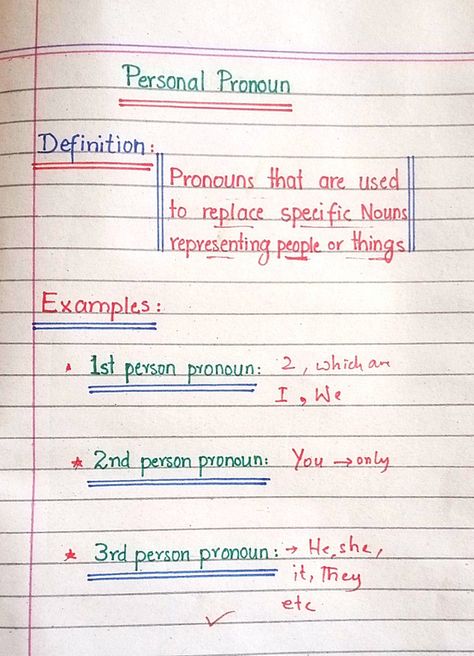 Personal Pronoun
Definition:
Pronouns that are used
to replace specific Nouns
representing people or things
Examples:
1st person pronoun: 2, which are
I, We
* 2nd person pronoun: You → only
* 3rd person pronoun: → He, she,
it, They
etc